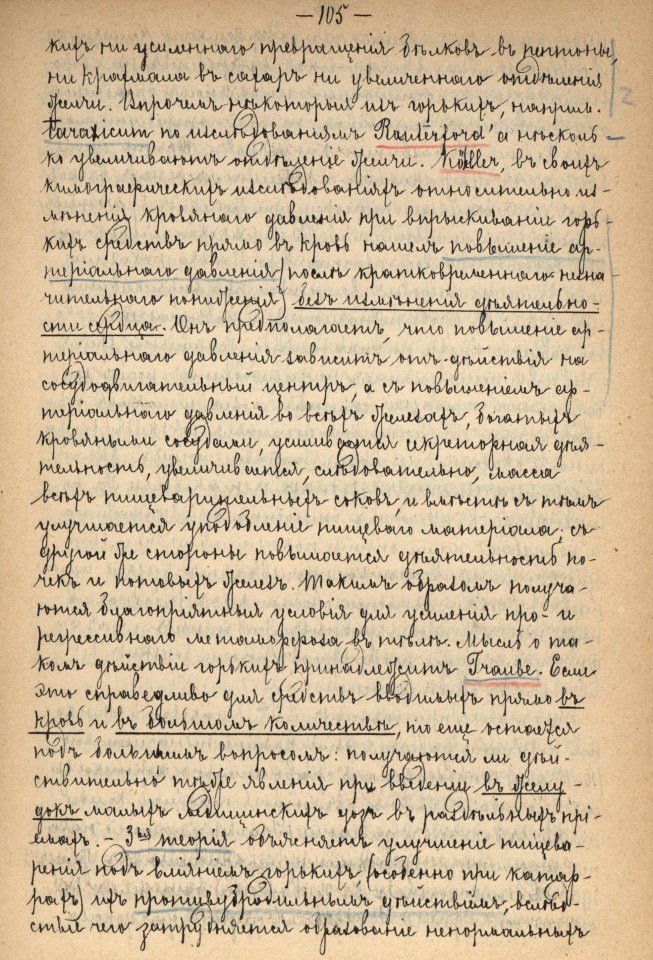 — 105 —
кихъ ни усиленнаго превращенія бѣлковъ въ пептоны,
ни крахмала въ сахаръ ни увеличеннаго отдѣленія
желчи. Впрочемъ нѣкоторыя изъ горькихъ, наприм.
Taraxicum по изслѣдованіямъ Routerford'а нѣсколь-
ко увеличиваютъ отдѣленіе желчи. Köller, въ своихъ
кимографическихъ изслѣдованіяхъ относительно из-
мѣненія кровянаго давленія при впрыскиваніи горь-
кихъ средствъ прямо въ кровь нашелъ повышеніе ар-
теріальнаго давленія (послѣ кратковременнаго незна-
чительнаго пониженія) безъ измѣненія дѣятельно-
сти сердца. Онъ предполагаетъ, что повышеніе ар-
теріальнаго давленія зависитъ отъ дѣйствія на
сосудодвигательный центръ, а съ повышеніемъ ар-
теріальнаго давленія во всѣхъ железахъ, богатыхъ
кровяными сосудами, усиливается секреторная дѣя-
тельность, увеличивается, слѣдовательно, масса
всѣхъ пищеварительныхъ соковъ, и вмѣстѣ съ тѣмъ
улучшается уподобленіе пищеваго матеріала; съ
другой же стороны повышается дѣятельность по-
чекъ и потовыхъ железъ. Такимъ образомъ получа-
ются благопріятныя условія для усиленія про- и
регрессивнаго метаморфоза въ тѣлѣ. Мысль о та-
комъ дѣйствіи горькихъ принадлежитъ Traube. Если
это справедливо для средствъ вводимыхъ прямо въ
кровь и въ большомъ количествѣ, то еще остается
подъ большимъ вопросомъ: получаются ли дѣй-
ствительно тѣже явленія при введеніи въ желу-
докъ малыхъ медицинскихъ дозъ въ раздѣльныхъ прі-
емахъ. — 3ья теорія объясняетъ улучшеніе пищева-
ренія подъ вліяніемъ горькихъ, (особенно при катар-
рахъ) ихъ противубродильнымъ дѣйствіемъ, вслѣд-
ствіе чего затрудняется образованіе ненормальныхъ